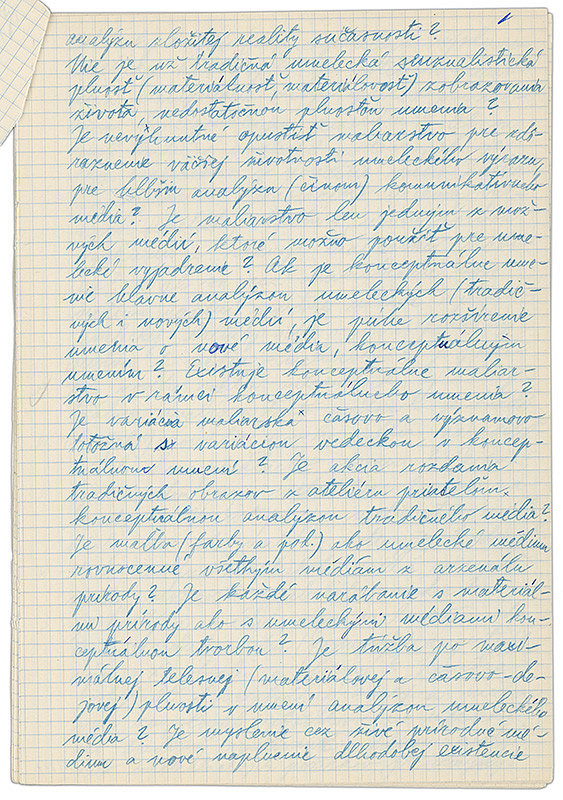 analýzu zložitej reality súčasnosti?
Nie je už tradičná umelecká senzualistická
plnosť (materiálnosť, materiálovosť) zobrazovania
života, nedostatočnou plnosťou umenia?
Je nevyhnutné opustiť maliarstvo pre zdô-
raznenie väčšej životnosti umeleckého výrazu,
pre hlbšiu analýzu (činom) komunikatívneho
média? Je maliarstvo len jedným z mož-
ných médií, ktoré možno použiť pre ume-
lecké vyjadrenie? Ak je konceptuálne ume-
nie hlavne analýzou umeleckých (tradič-
ných i nových) médií, je púhe rozšírenie
umenia o nové média, konceptuálnym
umením? Existuje konceptuálne maliar-
stvo v rámci konceptuálneho umenia?
Je variácia maliarska časovo a významovo
totožná s variáciou vedeckou v koncep-
tuálnom umení? Je akcia rozdania
tradičných obrazov z ateliéru priateľom,
konceptuálnou analýzou tradičného média?
Je maľba (farby a pod.) ako umelecké médium
rovnocenné všetkým médiám z arzenálu
prírody? Je každé narábanie s materiál-
mi prírody ako s umeleckými médiami kon-
ceptuálnou tvorbou? Je túžba po maxi-
málnej telesnej (materiálovej a časovo-de-
jovej) plnosti v umení analýzou umeleckého
média? Je myslenie cez živé prírodné mé-
dium a nové naplnenie dlhodobej existencie